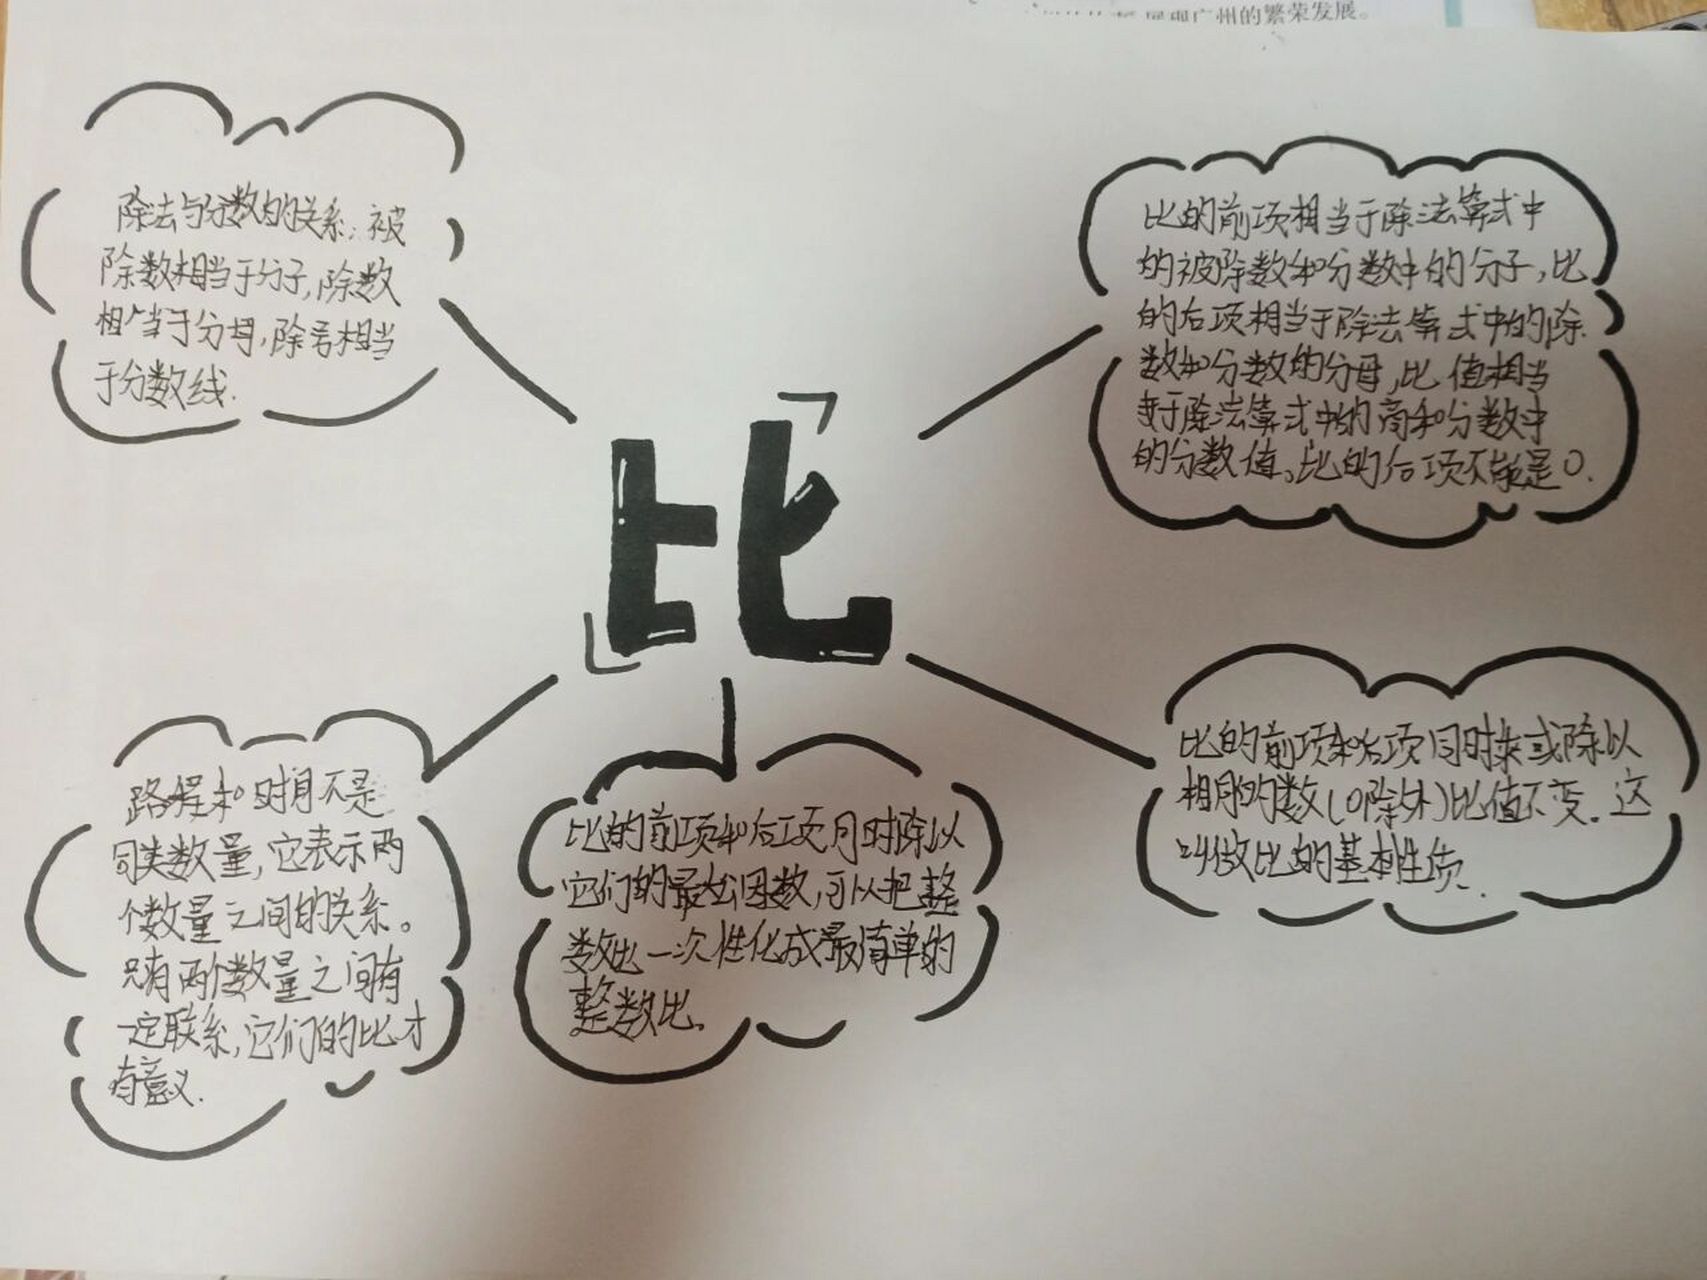 广州的繁荣发展。
除法与分数的关系:被
除数相当于分子,除数
相当于分母,除号相当
于分数线.
比的前项相当于除法算式中
的被除数和分数中的分子,比
的后项相当于除法算式中的除
数和分数的分母,比值相当
于除法算式中的商和分数中
的分数值。比的后项不能是0.
比
路程和时间不是
同类数量,它表示两
个数量之间的关系。
只有两个数量之间有
一定联系,它们的比才
有意义.
比的前项和后项同时除以
它们的最大公因数,可以把整
数比一次性化成最简单的
整数比.
比的前项和后项同时乘或除以
相同的数(0除外)比值不变.这
叫做比的基本性质.